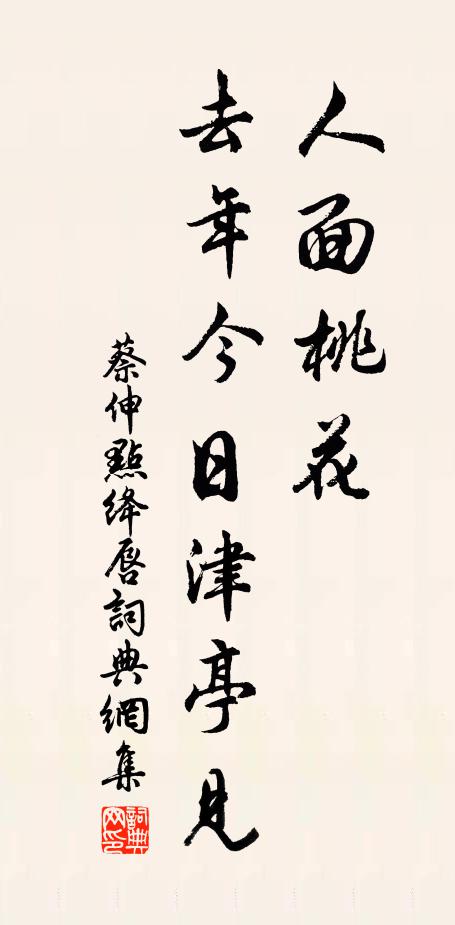 人面桃花
去年今日津亭見
蔡伸點絳唇詞典網集
詞典網印